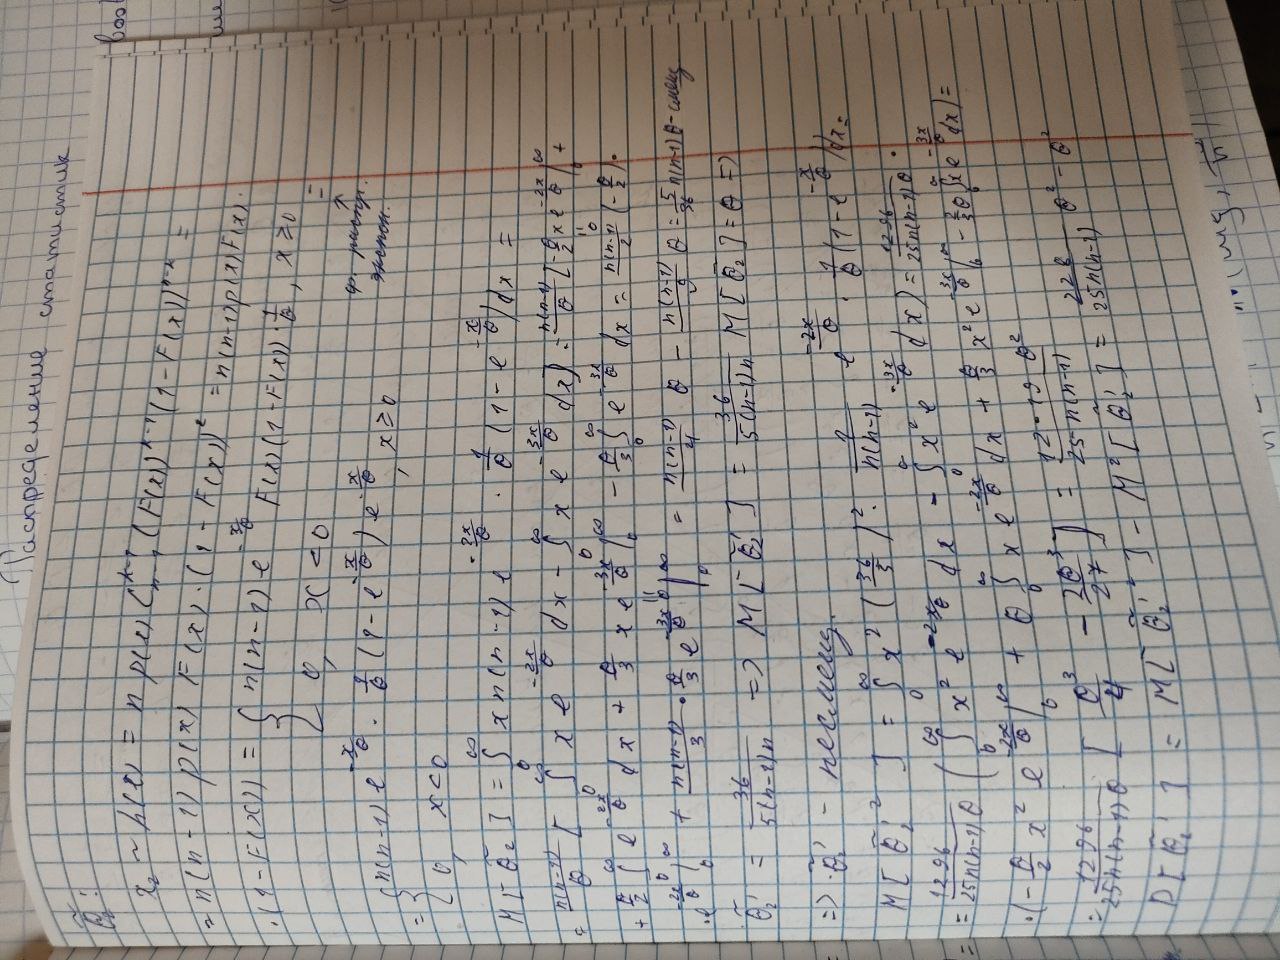 Распределение статистик
θ̃₂:
x₂ ~ h(x) = n p(x) C_{n-1}^{k-1} (F(x))^{k-1} (1 - F(x))^{n-k} =
= n(n-1) p(x) F(x) · (1 - F(x))² = n(n-1) p(x) F(x) ·
· (1 - F(x)) = { n(n-1) e^{-x/θ} F(x)(1 - F(x)) · 1/θ, x ≥ 0
0, x < 0 =
ф. распр. экспон.
= { n(n-1) e^{-x/θ} · 1/θ (1 - e^{-x/θ}) e^{-x/θ}, x ≥ 0
0, x < 0
M[θ̃₂] = ∫₀^∞ x n(n-1) e^{-2x/θ} · 1/θ (1 - e^{-x/θ}) dx =
= n(n-1)/θ [ ∫₀^∞ x e^{-2x/θ} dx - ∫₀^∞ x e^{-3x/θ} dx ] = n(n-1)/θ [ -θ/2 x e^{-2x/θ} |₀^∞ +
+ θ/2 ∫₀^∞ e^{-2x/θ} dx + θ/3 x e^{-3x/θ} |₀^∞ - θ/3 ∫₀^∞ e^{-3x/θ} dx = n(n-1)/2 (-θ/2) ·
· e^{-2x/θ} |₀^∞ + n(n-1)/3 · θ/3 e^{-3x/θ} |₀^∞ = n(n-1)/4 θ - n(n-1)/9 θ = 5/36 n(n-1) θ - смещ
θ̃₂' = 36/5(n-1)n => M[θ̃₂'] = 36/5(n-1)n M[θ̃₂] = θ =>
=> θ̃₂' - несмещ.
M[θ̃₂'²] = ∫₀^∞ x² (36/5)² · 1/n(n-1) e^{-2x/θ} · 1/θ (1 - e^{-x/θ}) dx =
= 1296/25n(n-1)θ ( ∫₀^∞ x² e^{-2x/θ} dx - ∫₀^∞ x² e^{-3x/θ} dx ) = 1296/25n(n-1)θ ·
· (-θ/2 x² e^{-2x/θ} |₀^∞ + θ ∫₀^∞ x e^{-2x/θ} dx + θ/3 x² e^{-3x/θ} |₀^∞ - 2/3 θ ∫₀^∞ x e^{-3x/θ} dx) =
= 1296/25n(n-1)θ [ θ³/4 - 2θ³/27 ] = 12·19/25 n(n-1) θ²
D[θ̃₂'] = M[θ̃₂'²] - M²[θ̃₂'] = 228/25n(n-1) θ² - θ²